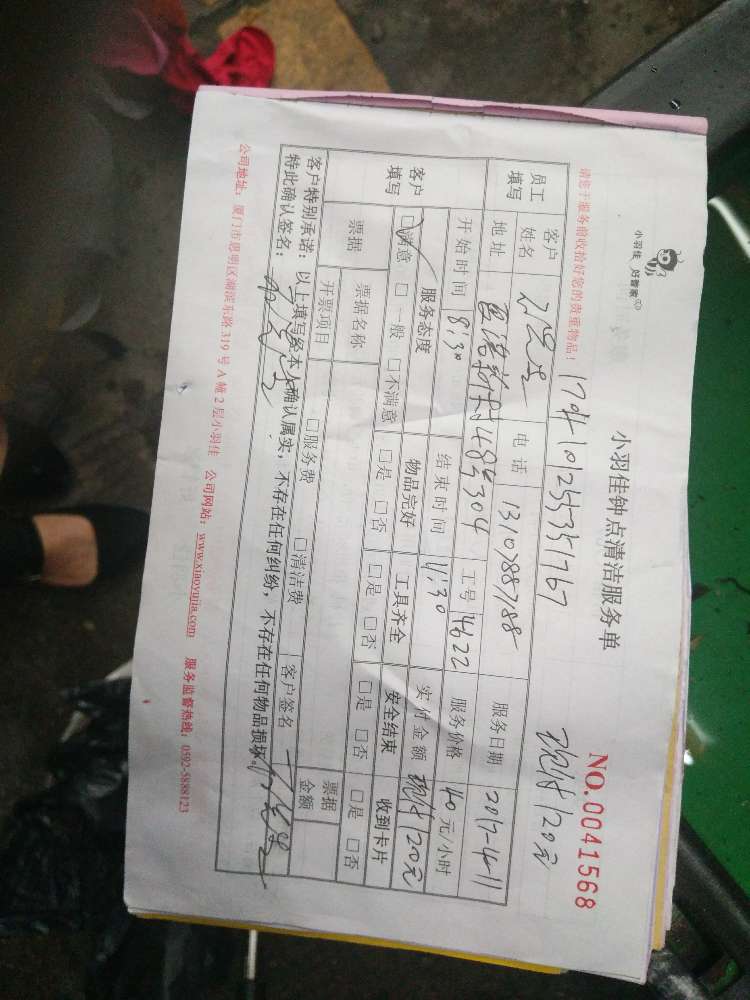 小羽佳 好管家
小羽佳钟点清洁服务单
NO.0041568
请您于服务前收拾好您的贵重物品!
现付120元
员工填写
客户姓名
电话
服务日期 2017-4-11
地址
484304
工号 4622
服务价格 40元/小时
开始时间 8:30
结束时间 11:30
实付金额 现付120元
客户填写
服务态度 物品完好 工具齐全 安全结束 收到卡片
☑满意 □一般 □不满意 □是 □否 □是 □否 □是 □否 □是 □否
票据
票据名称
开票项目 □服务费 □清洁费
客户签名
票据金额
客户特别承诺:以上填写经本人确认属实,不存在任何纠纷,不存在任何物品损坏。
特此确认签名:
公司地址:厦门市思明区湖滨东路319号A幢2层小羽佳 公司网站:www.xiaoyujia.com 服务监督热线:0592-5888123